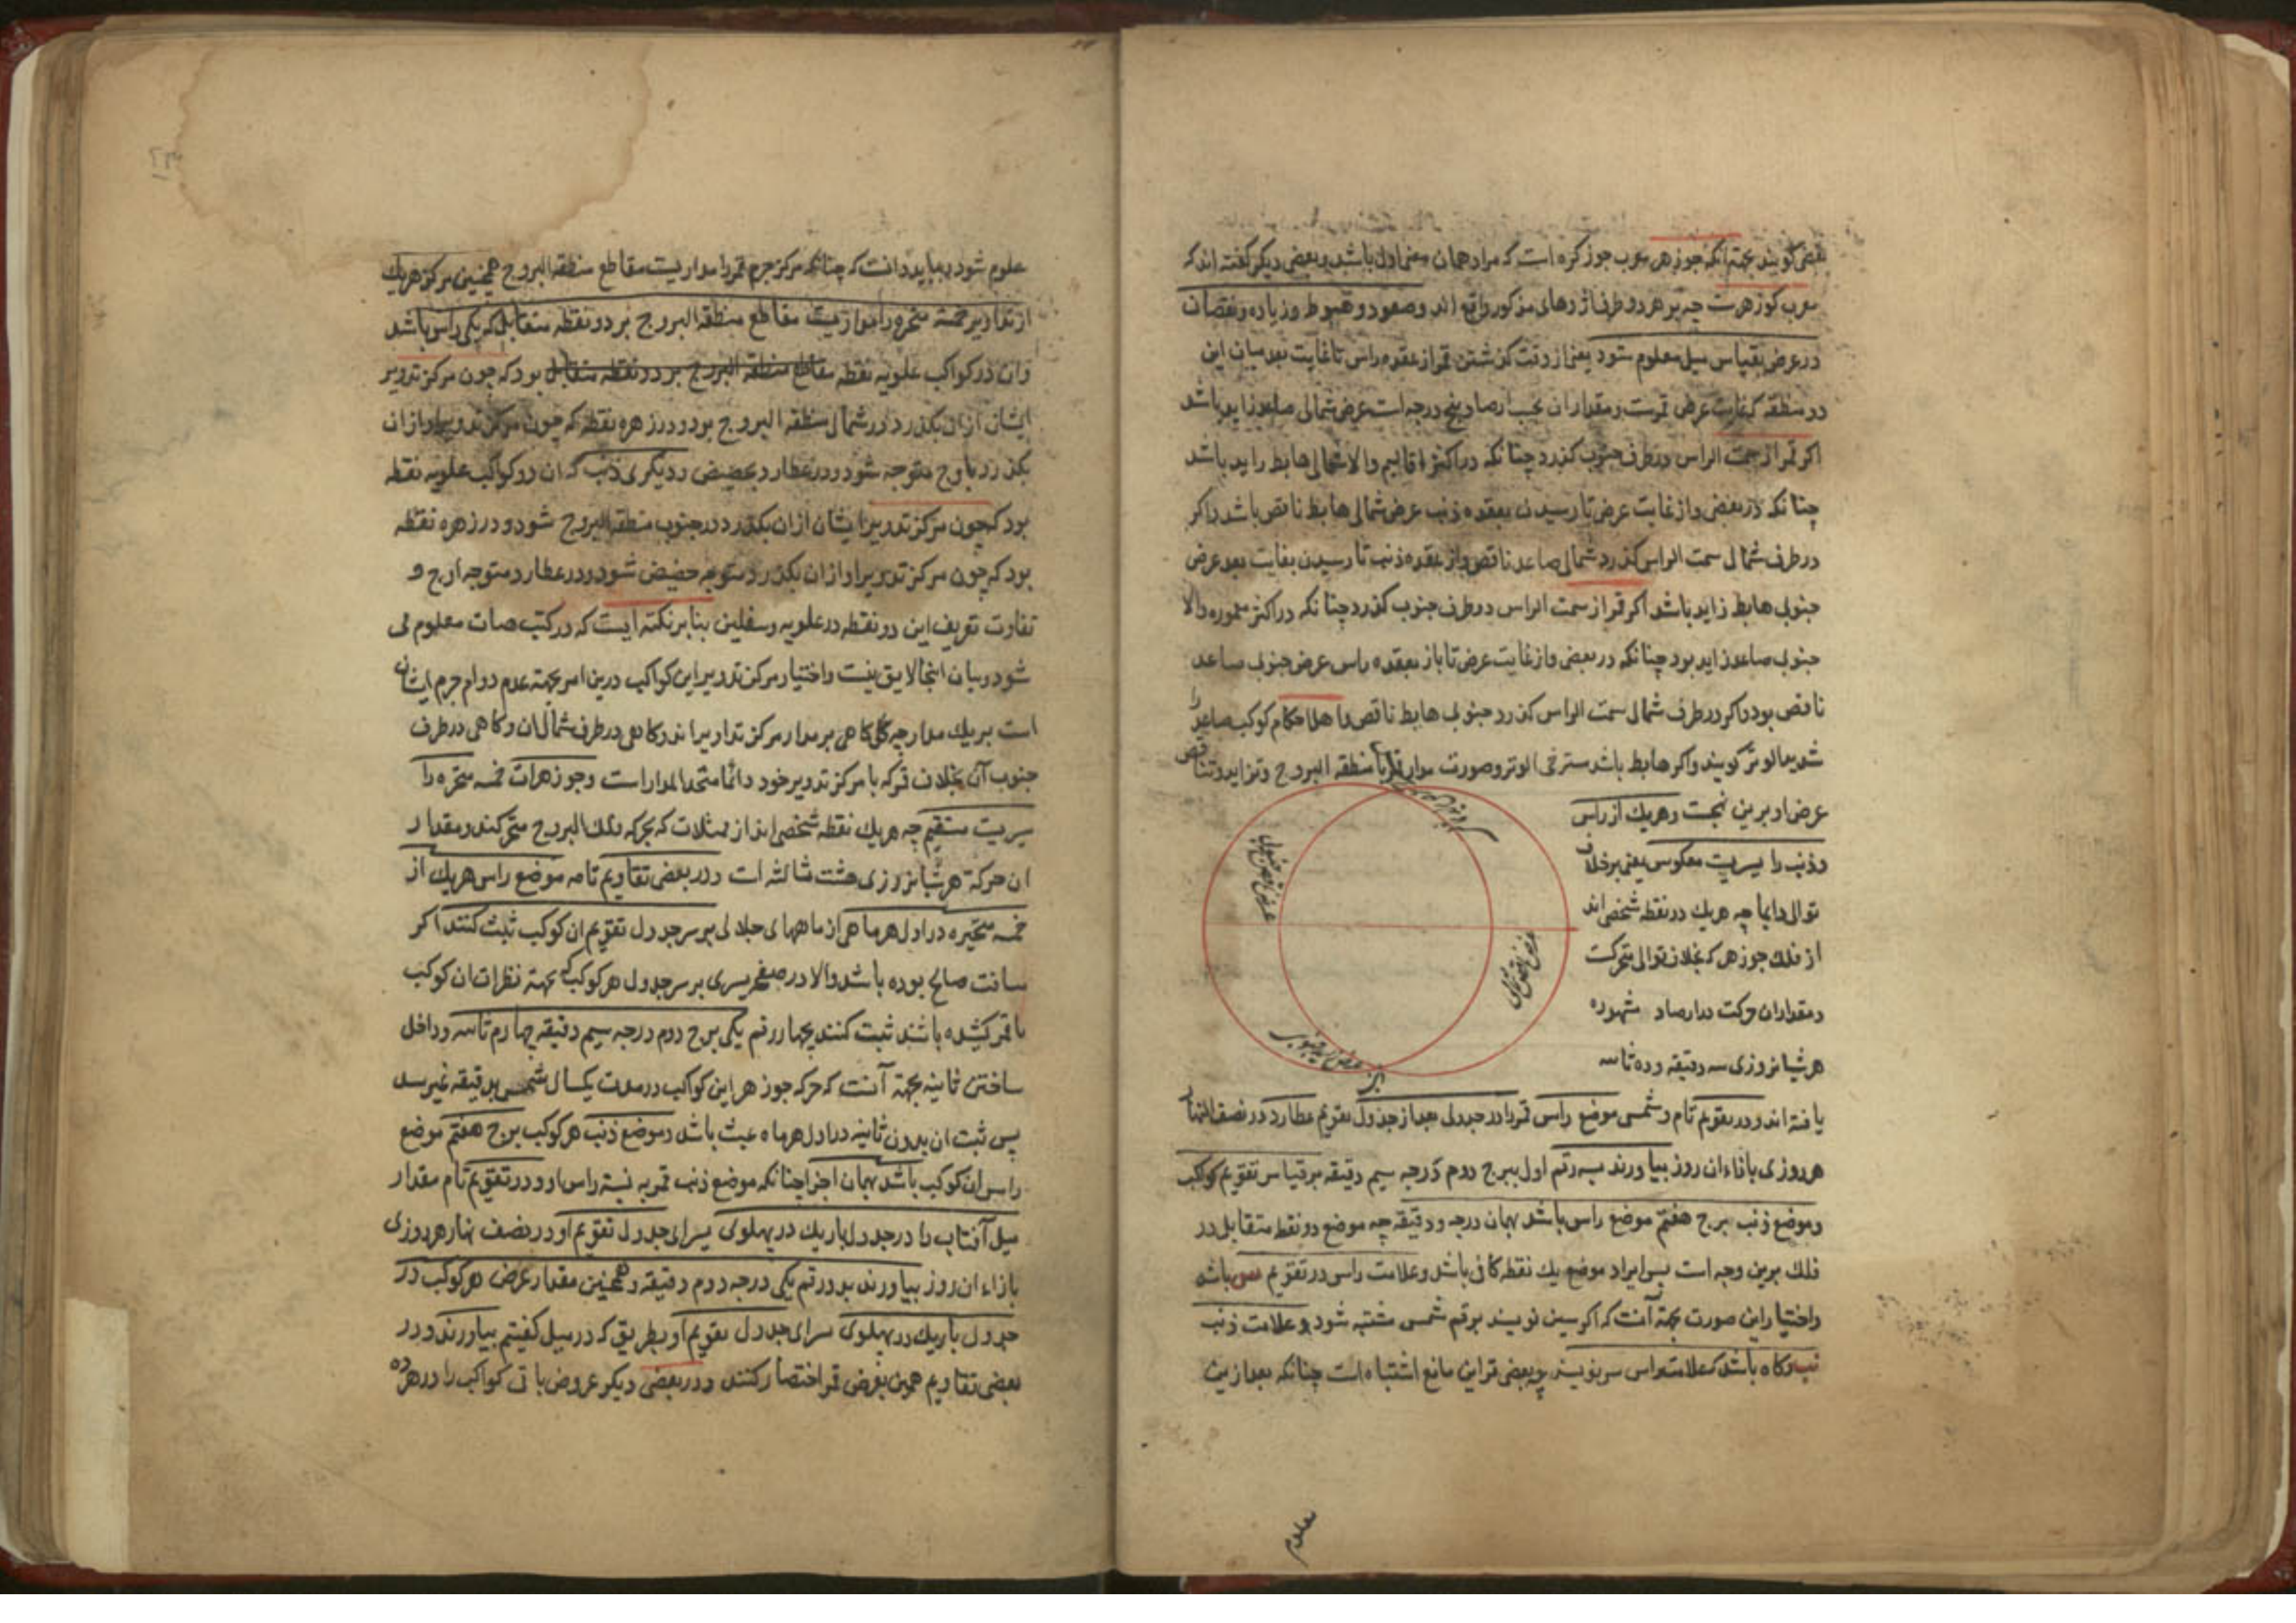 بعضی کویند بجهته آنکه جوزهر معرب جوز کره است که مراد همان معنی اول باشد و بعضی دیکر کفته اند که
معرب کوزهرست چه بر هر دو طرف اژدرهای مذکور واقع اند وصعود و هبوط وزیاده ونقصان
در عرض بقیاس میل معلوم شود یعنی از وقت کذشتن قمر از عقده راس تا غایت بعد میان این
دو منطقه که غایت عرض قمرست ومقدار ان بحسب ارصاد پنج درجه است عرض شمالی صاعد زاید باشد
اکر قمر از سمت الراس در طرف جنوب کذرد چنانکه در اکثر اقالیم والا شمالی هابط زاید باشد
چنانکه در بعضی واز غایت عرض تا رسیدن بعقده ذنب عرض شمالی هابط ناقص باشد واکر
در طرف شمال سمت الراس کذرد شمالی صاعد ناقص واز عقده ذنب تا رسیدن بغایت بعد عرض
جنوبی هابط زاید باشد اکر قمر از سمت الراس در طرف جنوب کذرد چنانکه در اکثر معموره والا
جنوبی صاعد زاید بود چنانکه در بعضی واز غایت عرض تا باز بعقده راس عرض جنوبی صاعد
ناقص بود واکر در طرف شمال سمت الراس کذرد جنوبی هابط ناقص واهل احکام کوکب صاعد را
شدید الوتر کویند واکر هابط باشد مسترخی الوتر وصورت مدار قمر با منطقه البروج وتزاید وتناقص
عرض او برین نهجست وهریك از راس
وذنب را سیریست معکوس یعنی برخلاف
توالی دایما چه هریك دو نقطه شخصی اند
از فلك جوزهر که بخلاف توالی متحرکست
ومقدار ان حرکت در ارصاد مشهوره
هر شبانروزی سه دقیقه وده ثانیه
یافته اند ودر تقویم تام وشمسی موضع راس قمر را در جدولی جدا از جدول تقویم عطارد در نصف النهار
هر روزی بازاء ان روز بیاورند بسه رقم اول برج دوم درجه سیم دقیقه بر قیاس تقویم کوکب
وموضع ذنب برج هفتم موضع راس باشد بهمان درجه ودقیقه چه موضع دو نقطه متقابل در
فلك برین وجه است پس ایراد موضع یك نقطه کافی باشد وعلامت راس در تقویم س باشد
واختیار این صورت بجهته آنست که اکر سین نویسند برقم شمس مشتبه شود وعلامت ذنب
نب وکاه باشد که علامت راس سر نویسند چه بعضی قراین مانع اشتباه است چنانکه بعد ازین
معلوم
علوم شود وبباید دانست که چنانکه مرکز جرم قمر را مداریست مقاطع منطقه البروج همچنین مرکز هریك
از تداویر خمسه متحیره را مداریست مقاطع منطقه البروج بر دو نقطه متقابل که یکی راس باشد
وان در کواکب علویه نقطه مقاطع منطقه البروج بر دو نقطه متقابل بود که چون مرکز تدویر
ایشان از ان بکذرد در شمال منطقه البروج بود ودر زهره نقطه که چون مرکز تدویر او از ان
بکذرد باوج متوجه شود ودر عطارد بحضیض ودیکری ذنب که ان در کواکب علویه نقطه
بود که چون مرکز تدویر ایشان از ان بکذرد در جنوب منطقه البروج شود ودر زهره نقطه
بود که چون مرکز تدویر او از ان بکذرد متوجه حضیض شود ودر عطارد متوجه اوج و
تفاوت تعریف این دو نقطه در علویه وسفلین بنابر نکته ایست که در کتب هیات معلوم می
شود وبیان اینجا لایق نیست واختیار مرکز تدویر این کواکب درین امر بجهته عدم دوام جرم ایشان
است بریك مدار چه کاهی بر مدار مرکز تداویر اند وکاهی در طرف شمال ان وکاهی در طرف
جنوب آن بخلاف قمر که با مرکز تدویر خود دائما متحد المدار است وجوزهرات خمسه متحیره را
سیریست مستقیم چه هریك نقطه شخصی اند از ممثلات که بحرکه فلك البروج متحرکند ومقدار
ان حرکة هر شبانروزی هشت ثالثه است ودر بعضی تقاویم تامه موضع راس هریك از
خمسه متحیره در اول هر ماهی از ماههای جلالی بر سر جدول تقویم ان کوکب ثبت کنند اکر
مسافت صالح بوده باشد والا در صفحه یسری بر سر جدول هر کوکب که بجهته نظرات ان کوکب
با قمر کشیده باشند ثبت کنند بچهار رقم یکی برج دوم درجه سیم دقیقه چهارم ثانیه وداخل
ساختن ثانیه بجهته آنست که حرکه جوزهر این کواکب در مدت یکسال شمسی بدقیقه نمیرسد
پس ثبت ان بدون ثانیه در اول هر ماه عبث باشد وموضع ذنب هر کوکب برج هفتم موضع
راس ان کوکب باشد بهمان اجزا چنانکه موضع ذنب قمر به نسبة راس او ودر تقویم تام مقدار
میل آفتاب را در جدول باریك در پهلوی یسرای جدول تقویم او در نصف نهار هر روزی
بازاء ان روز بیاورند بدو رقم یکی درجه دوم دقیقه وهمچنین مقدار عرض هر کوکب در
جدول باریك در پهلوی یسرای جدول تقویم او بطریق که در میل کفتیم بیاورند ودر
بعضی تقاویم همین بعرض قمر اختصار کنند ودر بعضی دیکر عروض باقی کواکب را در هر ده